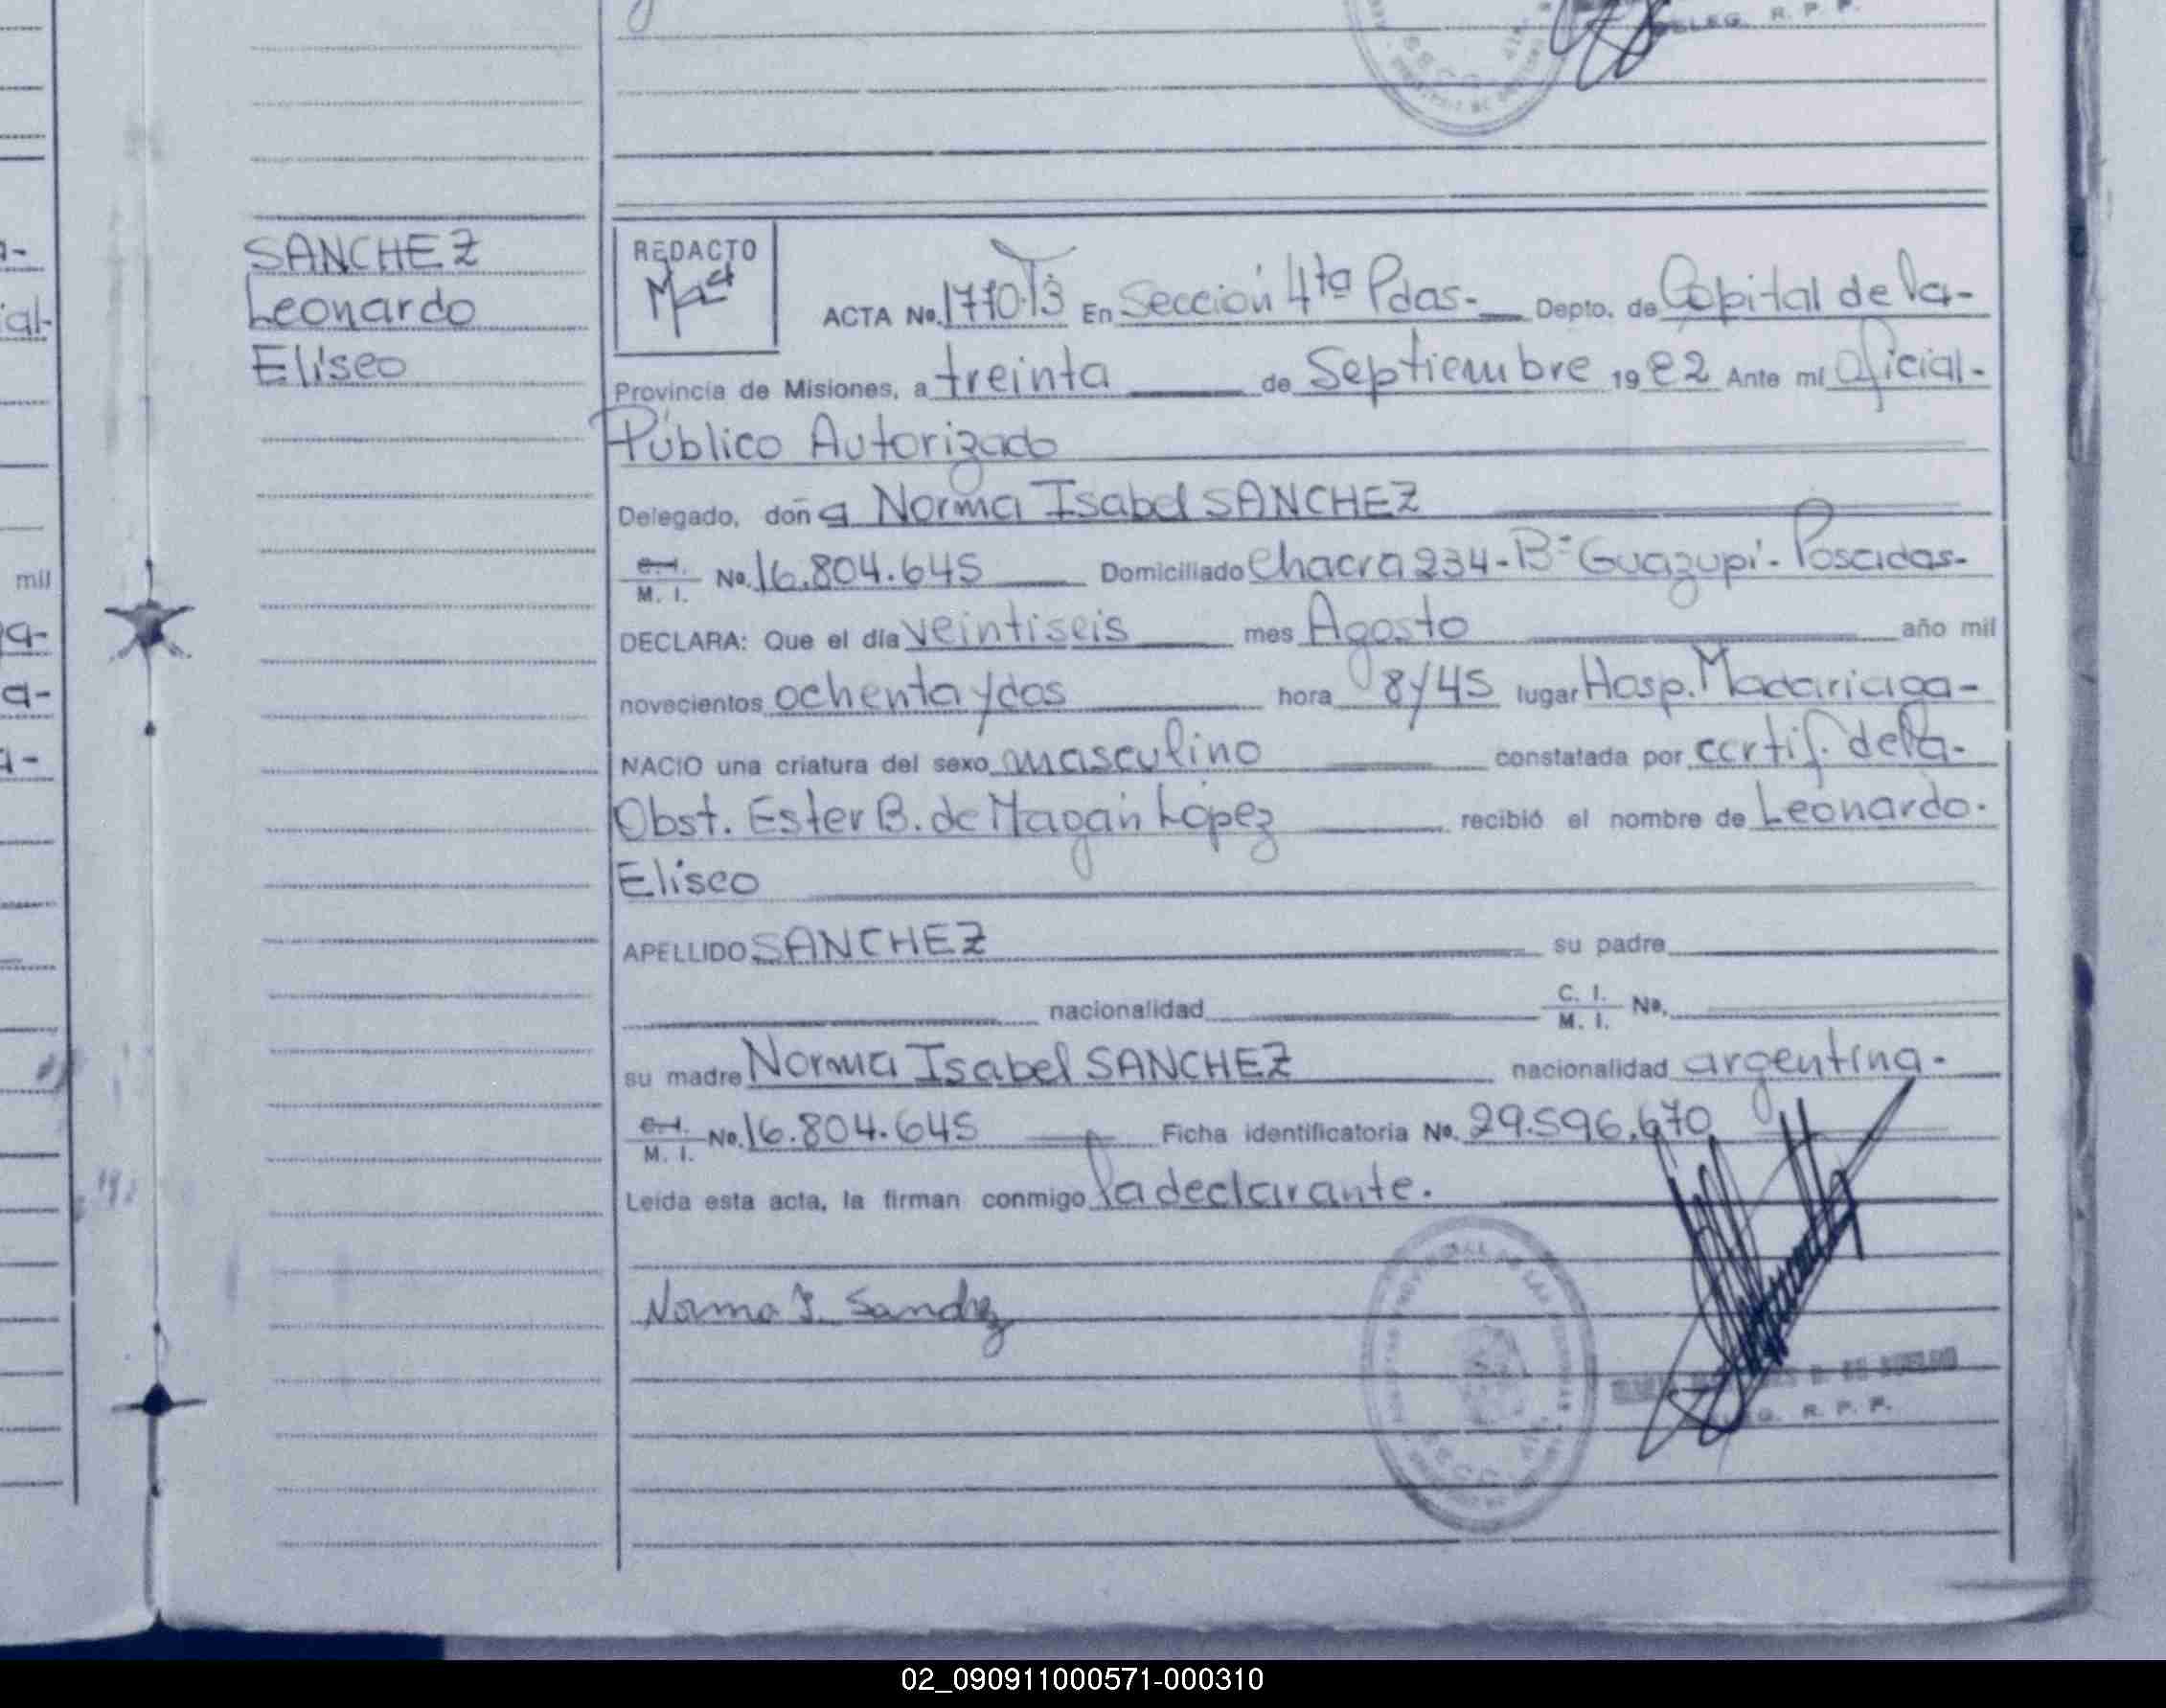 DELEG. R. P. P.
SANCHEZ
Leonardo
Eliseo
REDACTO
ACTA No. 1770 T3 En Sección 4ta Pdas- Depto. de Capital de la-
Provincia de Misiones, a treinta de Septiembre 1982 Ante mí Oficial-
Público Autorizado
Delegado, doña Norma Isabel SANCHEZ
C.I. M. I. No. 16.804.645 Domiciliado Chacra 234-Bº Guazupí-Posadas-
DECLARA: Que el día veintiseis mes Agosto año mil
novecientos ochenta y dos hora 8y45 lugar Hosp. Madariaga-
NACIO una criatura del sexo masculino constatada por certif. de la-
Obst. Ester B. de Magán López recibió el nombre de Leonardo-
Eliseo
APELLIDO SANCHEZ su padre
nacionalidad C. I. M. I. No.
su madre Norma Isabel SANCHEZ nacionalidad argentina-
C.I. M. I. No. 16.804.645 Ficha identificatoria No. 29.596.670
Leída esta acta, la firman conmigo la declarante.
Norma I. Sanchez
R. P. P.
mil
02_090911000571-000310